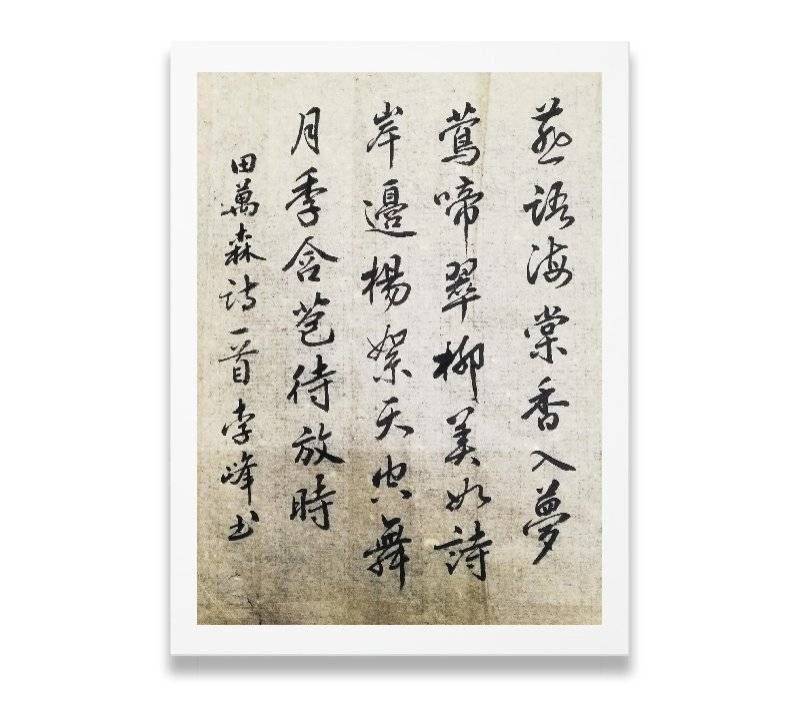 燕語海棠香入夢
鶯啼翠柳美如詩
岸邊楊絮天空舞
月季含苞待放時
田萬森詩一首李峰书